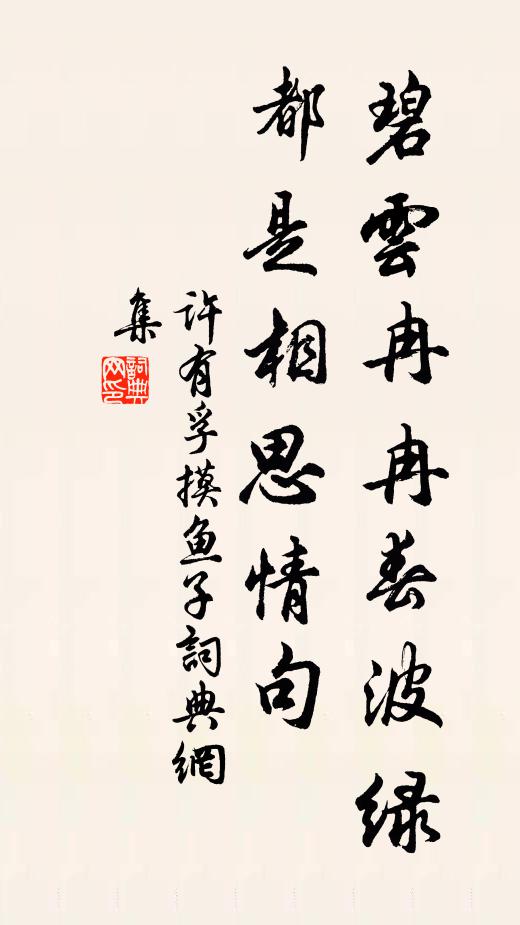 碧雲冉冉春波緑
都是相思情句
許有孚摸鱼子詞典網
集
詞典网印